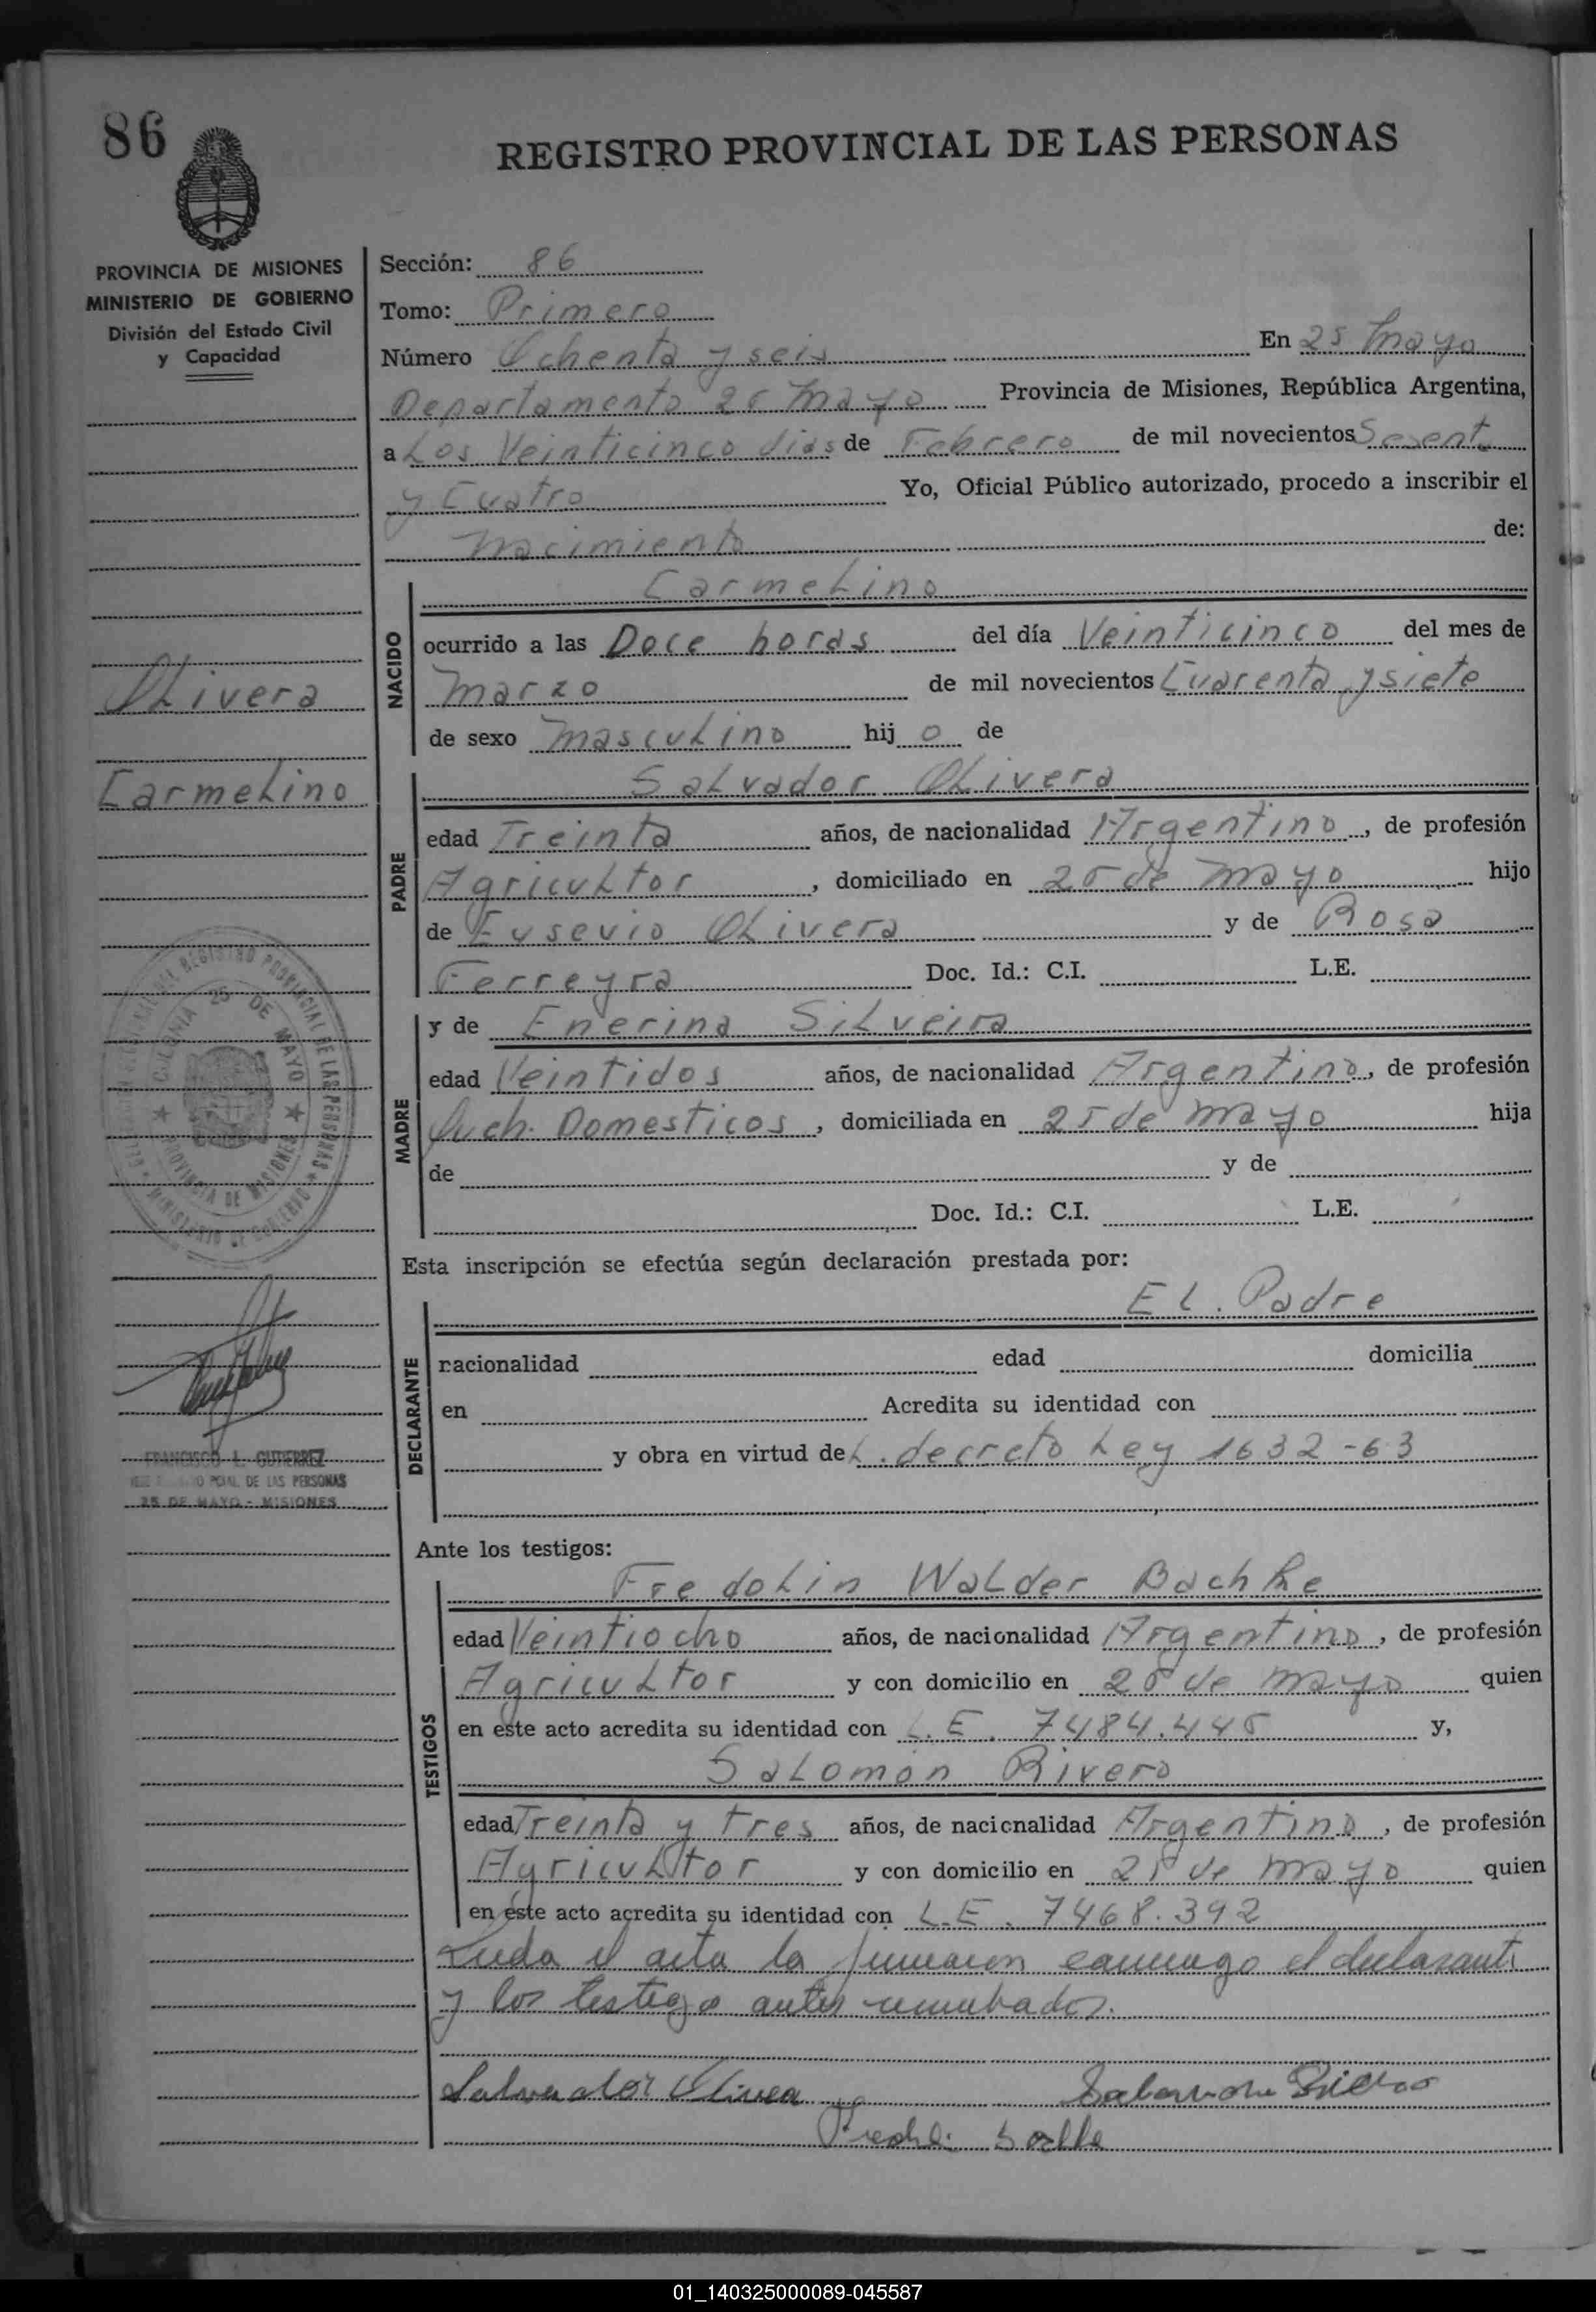 86
REGISTRO PROVINCIAL DE LAS PERSONAS
PROVINCIA DE MISIONES
MINISTERIO DE GOBIERNO
División del Estado Civil
y Capacidad
Olivera
Carmelino
REGISTRO PROVINCIAL DE LAS PERSONAS
COLONIA 25 DE MAYO
PROVINCIA DE MISIONES
MINISTERIO DE GOBIERNO
FRANCISCO L. GUTIERREZ
DE LAS PERSONAS
25 DE MAYO - MISIONES
Sección: 86
Tomo: Primero
Número Ochenta y seis En 25 Mayo
Departamento 25 Mayo Provincia de Misiones, República Argentina,
a Los Veinticinco dias de Febrero de mil novecientos Sesent
y Cuatro Yo, Oficial Público autorizado, procedo a inscribir el
Nacimiento de:
NACIDO
Carmelino
ocurrido a las Doce horas del día Veinticinco del mes de
Marzo de mil novecientos Cuarenta y siete
de sexo Masculino hij o de
PADRE
Salvador Olivera
edad Treinta años, de nacionalidad Argentino, de profesión
Agricultor, domiciliado en 25 de Mayo hijo
de Eusevio Olivera y de Rosa
Ferreyra Doc. Id.: C.I. L.E.
MADRE
y de Enerina Silveira
edad Veintidos años, de nacionalidad Argentina, de profesión
Queh. Domesticos, domiciliada en 25 de Mayo hija
de y de
Doc. Id.: C.I. L.E.
Esta inscripción se efectúa según declaración prestada por:
DECLARANTE
El. Padre
nacionalidad edad domicilia
en Acredita su identidad con
y obra en virtud de L. decreto Ley 1632-63
Ante los testigos:
TESTIGOS
Fredolin Walder Bachke
edad Veintiocho años, de nacionalidad Argentino, de profesión
Agricultor y con domicilio en 25 de Mayo quien
en este acto acredita su identidad con L.E. 7484.445 y,
Salomón Rivero
edad Treinta y tres años, de nacionalidad Argentino, de profesión
Agricultor y con domicilio en 25 de Mayo quien
en este acto acredita su identidad con L.E. 7468.392
Leida el acta la firmaron conmigo el declarante
y los testigo antes nombrados.
Salvador Olivera
01_140325000089-045587